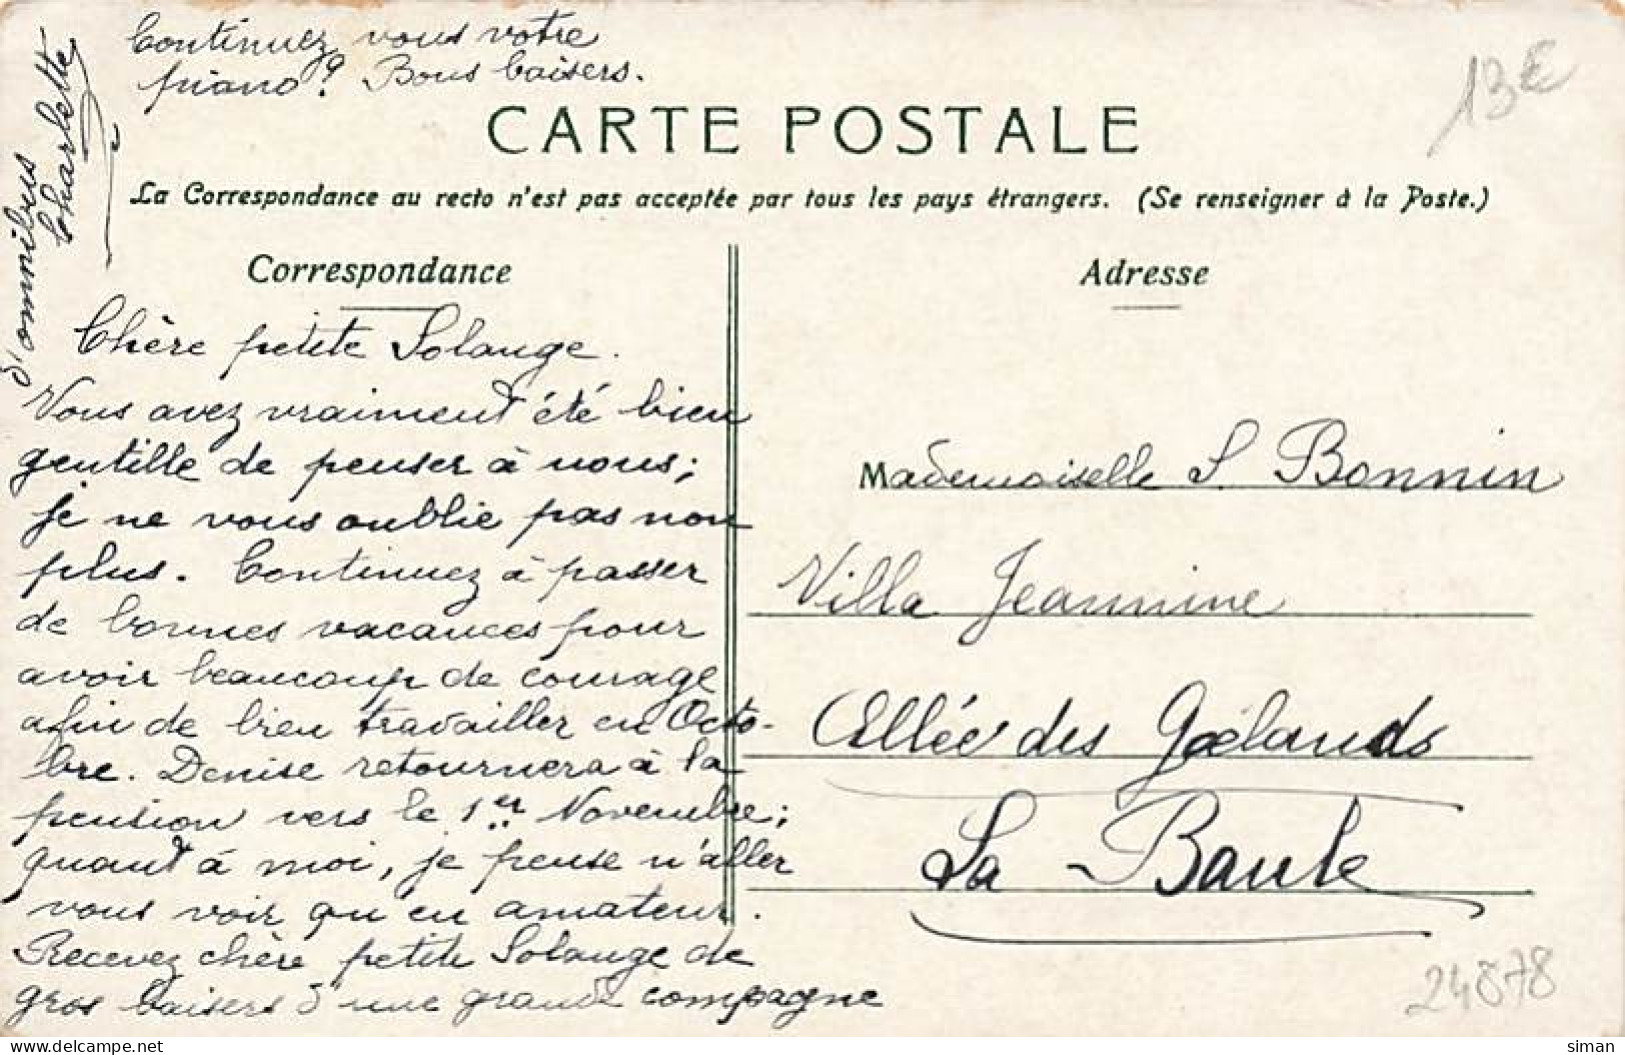 Continuez vous votre
piano? Bons baisers.
13€
CARTE POSTALE
La Correspondance au recto n'est pas acceptée par tous les pays étrangers. (Se renseigner à la Poste.)
Correspondance
Adresse
Chère petite Solange.
Vous avez vraiment été bien
gentille de penser à nous;
je ne vous oublie pas non
plus. Continuez à passer
de bonnes vacances pour
avoir beaucoup de courage
afin de bien travailler en Octo-
bre. Denise retournera à la
pension vers le 1er Novembre;
quant à moi, je pense n'aller
vous voir qu'en amateur.
Recevez chère petite Solange de
gros baisers d'une grande compagne
d'omnibus
Charlette
Mademoiselle S. Bonnin
Villa Jeannine
Allée des Goëlands
La Baule
24878
delcampe.net
siman